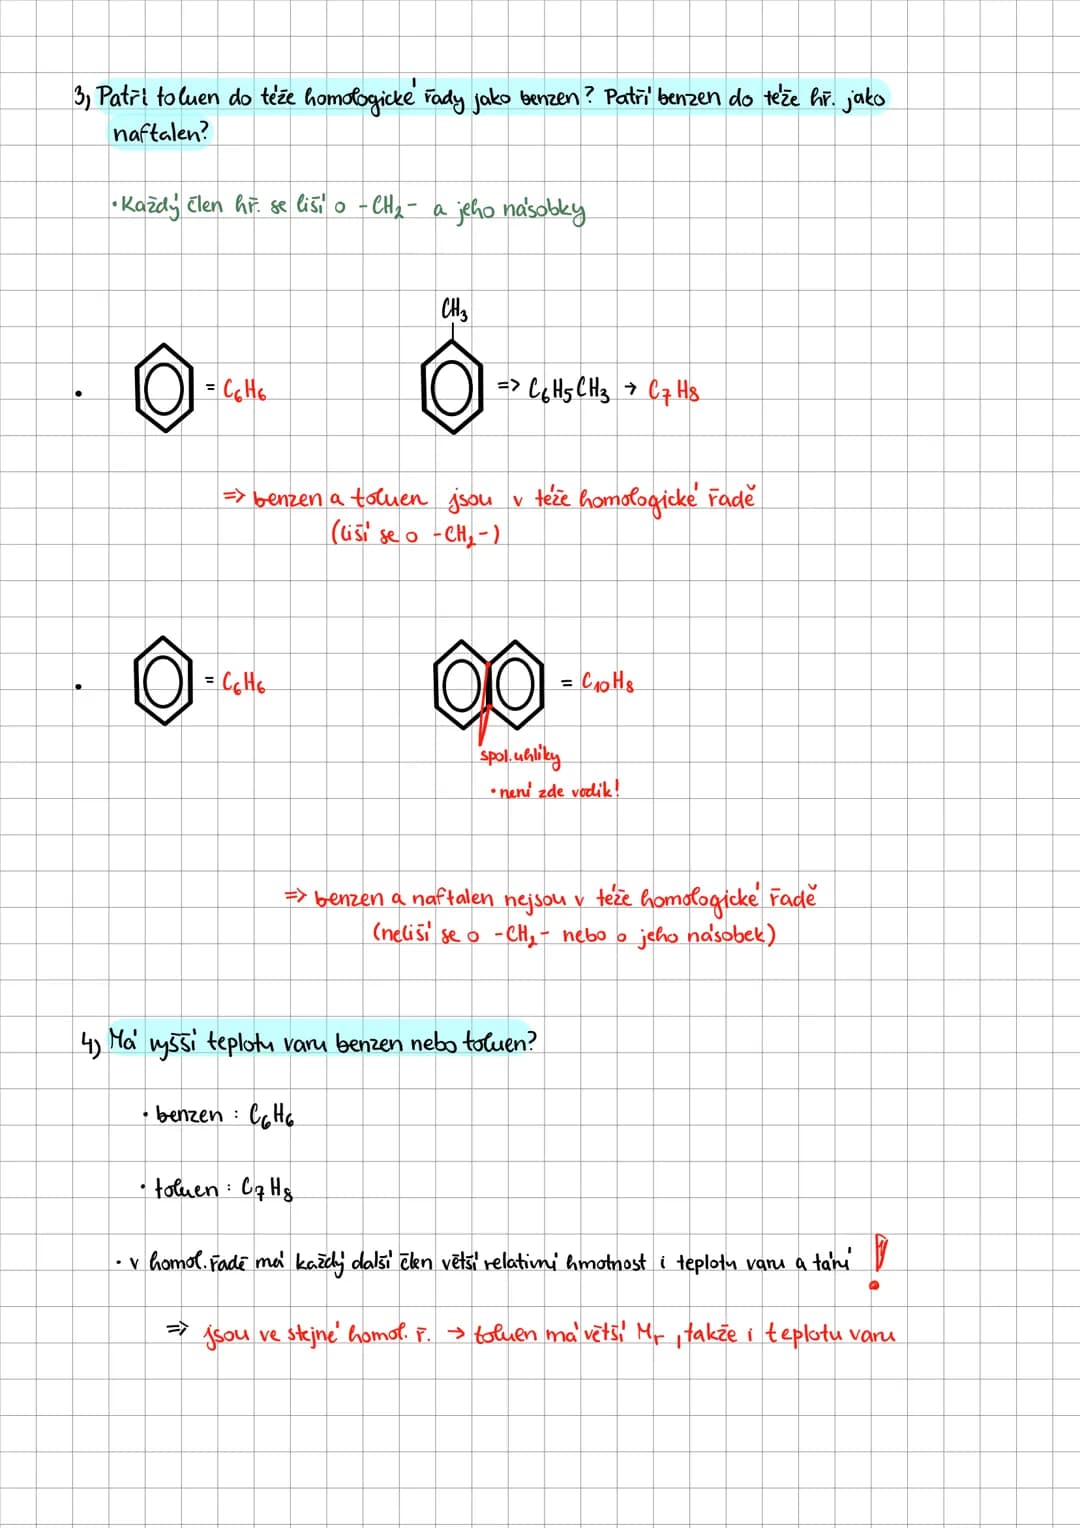 3) Patří toluen do téže homologické řady jako benzen? Patří benzen do téže hř. jako
naftalen?
• Každý člen hř. se liší o -CH₂- a jeho násobky
CH₃
• = C₆H₆ => C₆H₅CH₃ → C₇H₈
=> benzen a toluen jsou v téže homologické řadě
(liší se o -CH₂-)
• = C₆H₆ = C₁₀H₈
spol. uhlíky
• není zde vodík!
=> benzen a naftalen nejsou v téže homologické řadě
(neliší se o -CH₂- nebo o jeho násobek)
4) Má vyšší teplotu varu benzen nebo toluen?
• benzen : C₆H₆
• toluen : C₇H₈
• v homol. řadě má každý další člen větší relativní hmotnost i teplotu varu a tání !
=> jsou ve stejné homol. ř. → toluen má větší Mr, takže i teplotu varu